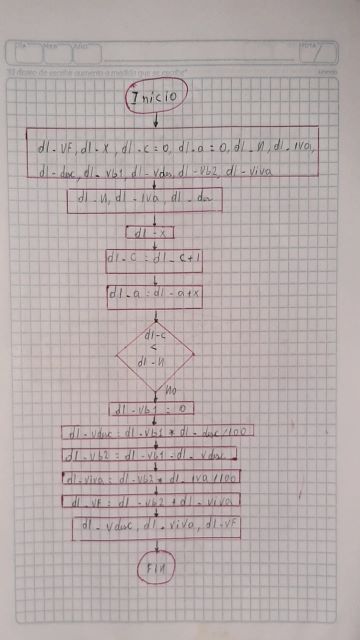 Día Mes Año
NOTA
"El deseo de escribir aumenta a medida que se escribe"
Inicio
dl-VF, dl-x, dl-c=0, dl-a=0, dl-n, dl-iva,
dl-desc, dl-vb1, dl-vdes, dl-vb2, dl-viva
dl-n, dl-iva, dl-des
dl-x
dl-c = dl-c+1
dl-a = dl-a+x
dl-c
<
dl-n
no
dl-vb1 = 0
dl-vdesc = dl-vb1 * dl-desc/100
dl-vb2 = dl-vb1 - dl-vdesc
dl-viva = dl-vb2 * dl-iva/100
dl-VF = dl-vb2 + dl-viva
dl-vdesc, dl-viva, dl-VF
Fin